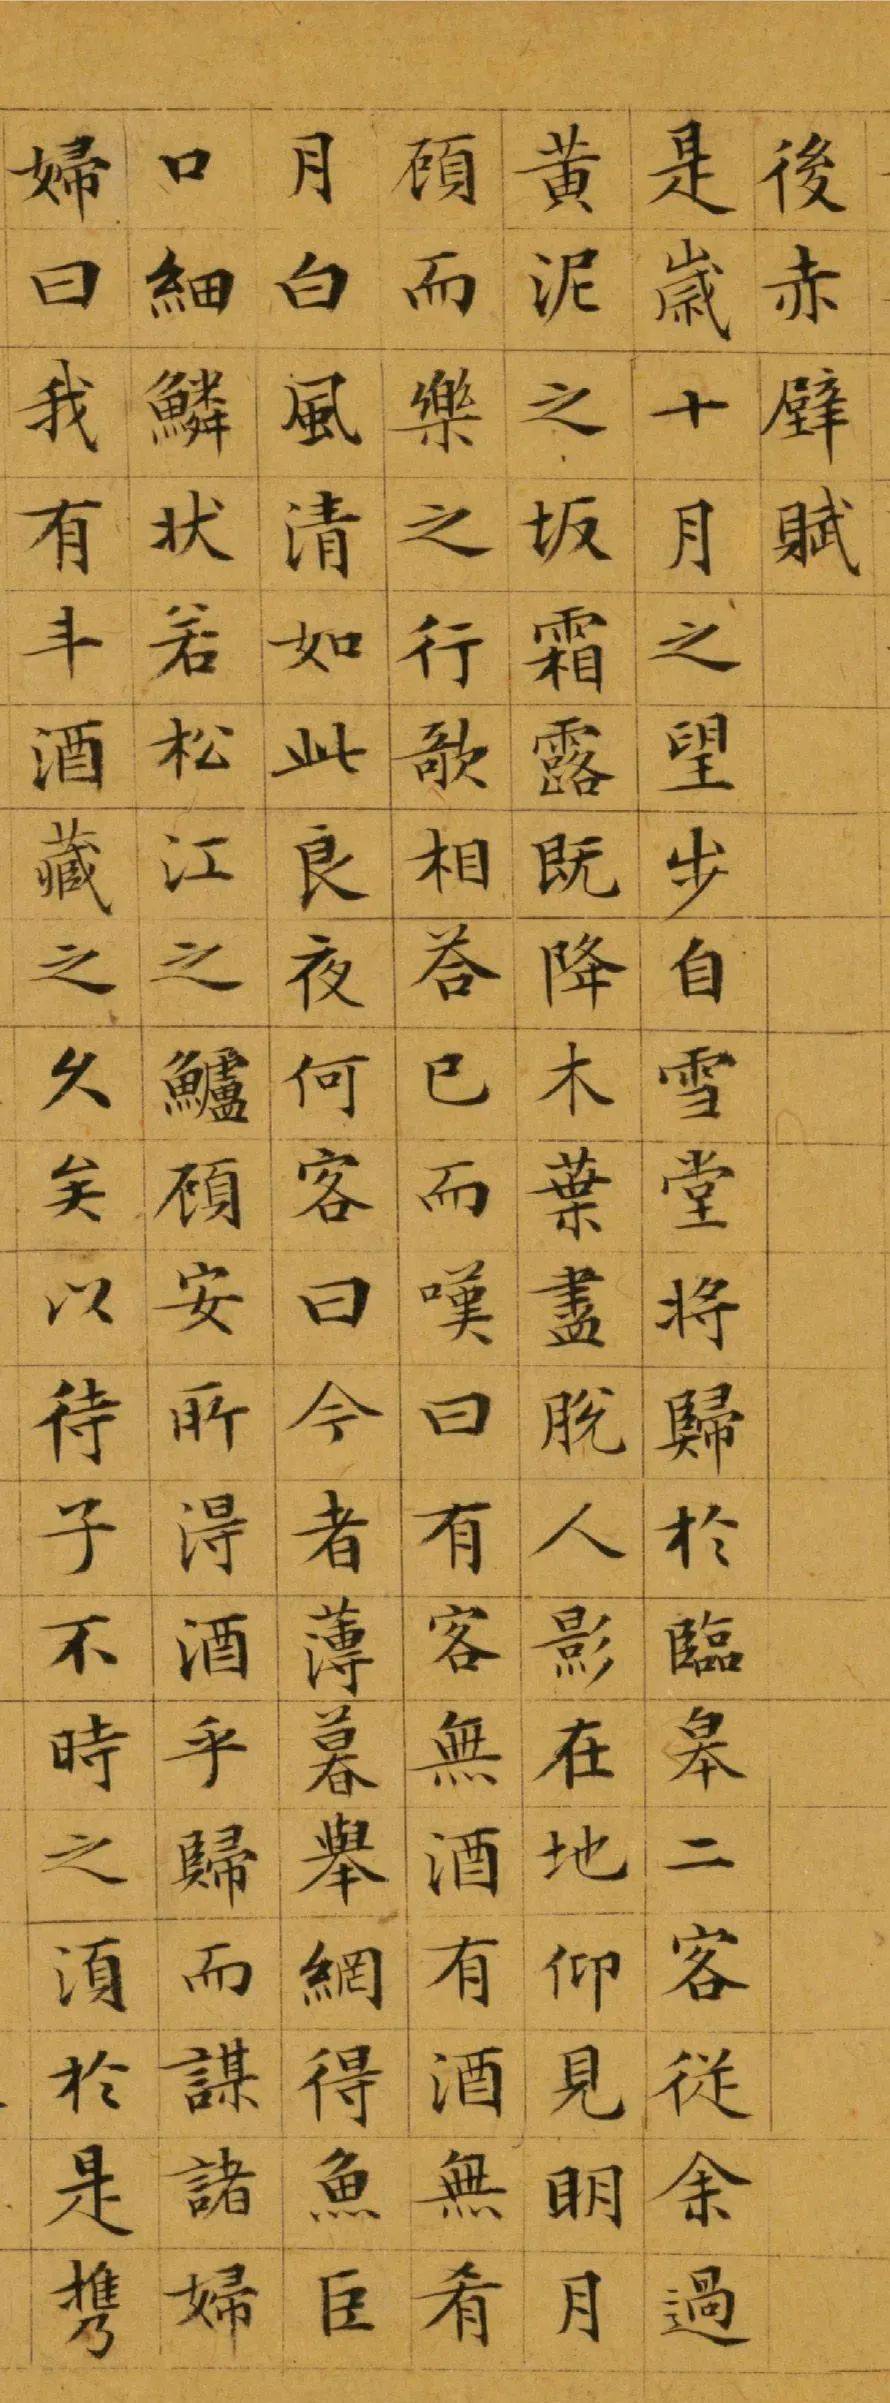 後赤壁賦
是歳十月之望步自雪堂將歸於臨皋二客從余過
黃泥之坂霜露既降木葉盡脫人影在地仰見明月
顧而樂之行歌相荅已而嘆曰有客無酒有酒無肴
月白風清如此良夜何客曰今者薄暮舉網得魚巨
口細鱗状若松江之鱸顧安所得酒乎歸而謀諸婦
婦曰我有斗酒藏之久矣以待子不時之須於是攜